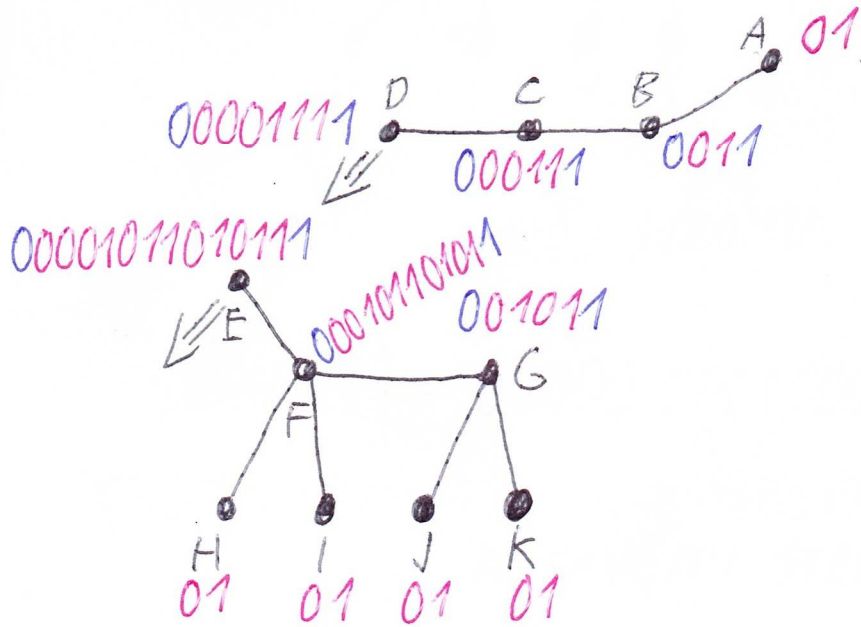 A 01
D C B
00001111
000111 0011
00001011010111
000101101011
001011
E
G
F
H I J K
01 01 01 01